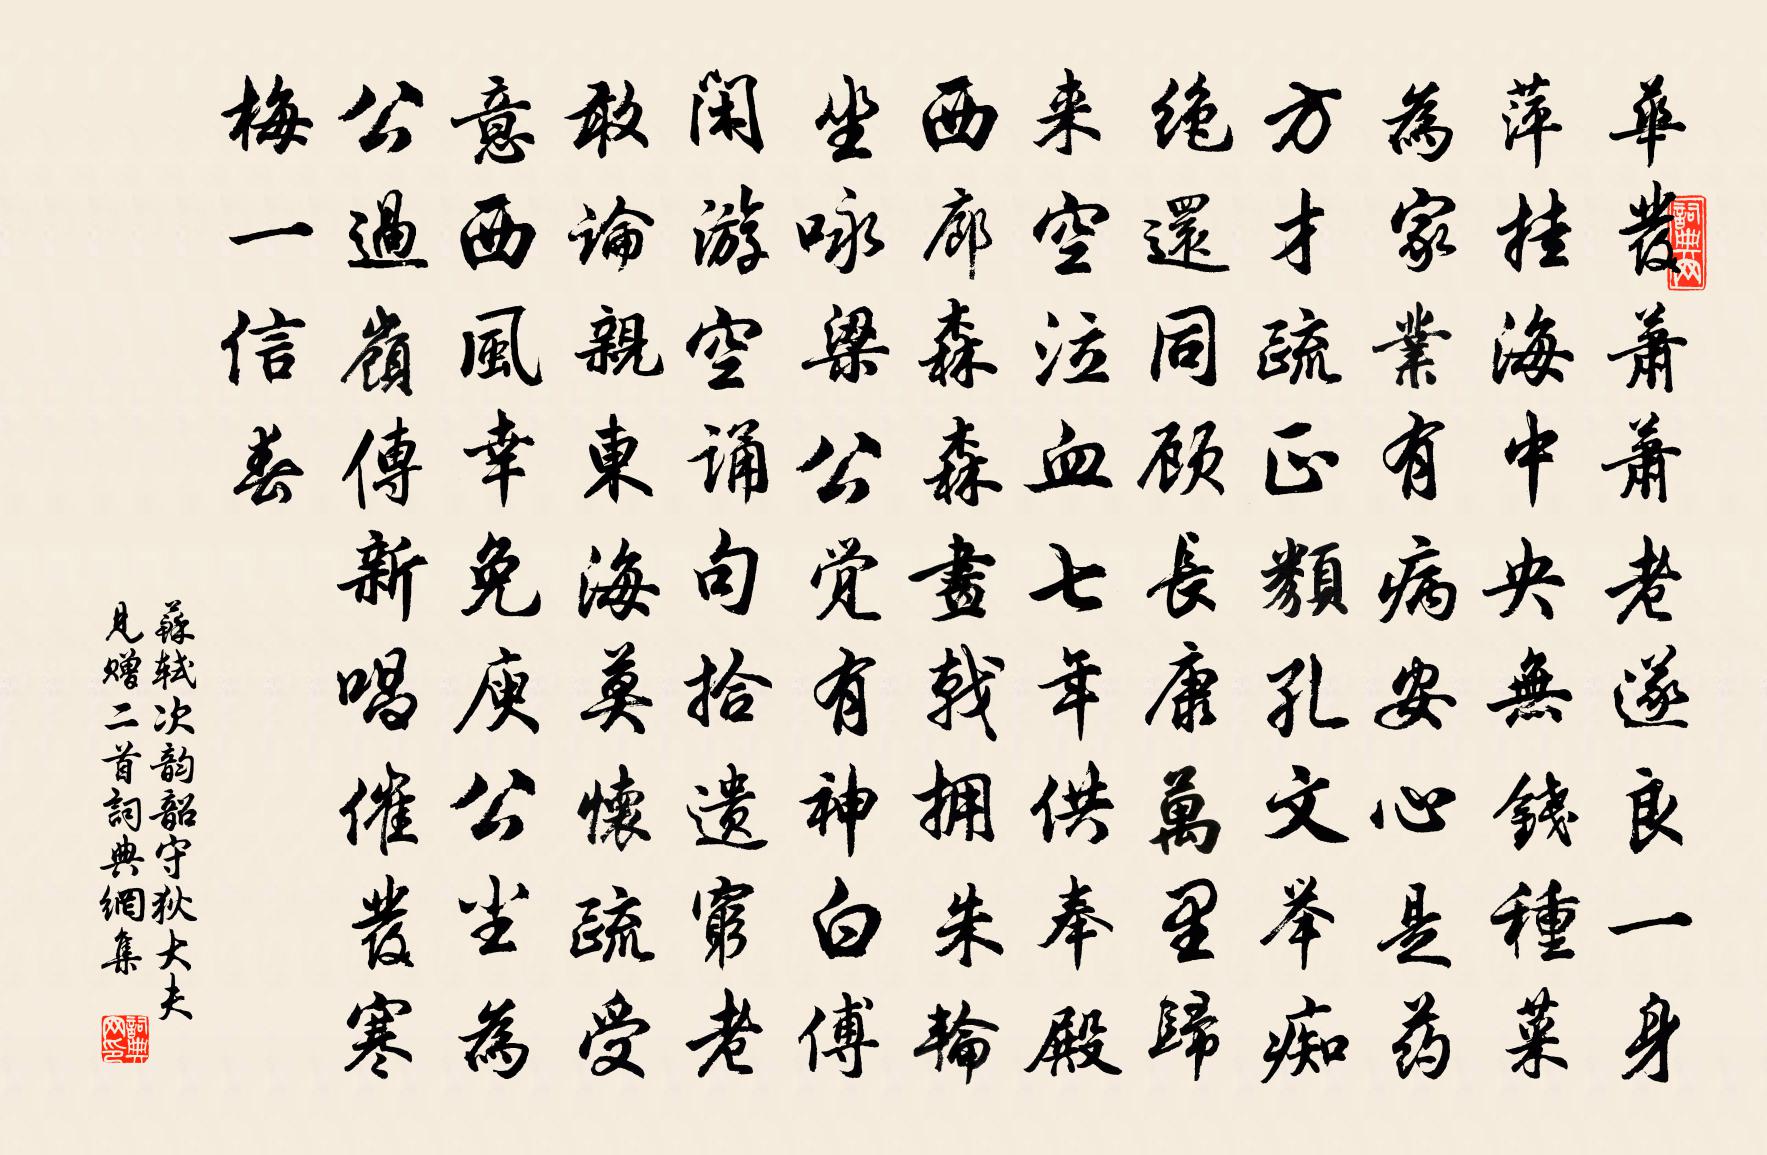 華發蕭蕭老遂良一身
萍挂海中央無錢種菜
為家業有病安心是药
方才疏正類孔文举痴
绝還同顾長康萬里歸
来空泣血七年供奉殿
西廊森森畫戟拥朱輪
坐咏梁公觉有神白傅
闲游空诵句拾遗窮老
敢論親東海莫懷疏受
意西風幸免庾公尘為
公過嶺傳新唱催發寒
梅一信春
蘇轼次韵韶守狄大夫
见赠二首詞典網集
詞典网
詞典网印